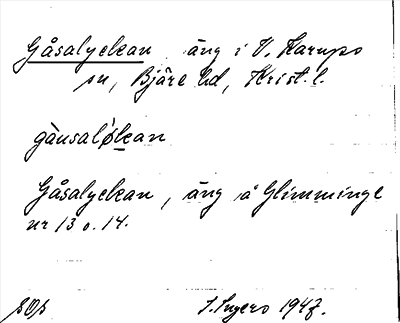 Gåsalyckan äng i V. Karups
sn, Bjäre hd, Krist. l.
gåusaløkan
Gåsalyckan, äng å Glimminge
nr 13 o. 14.
SOS I. Ingers 1947.